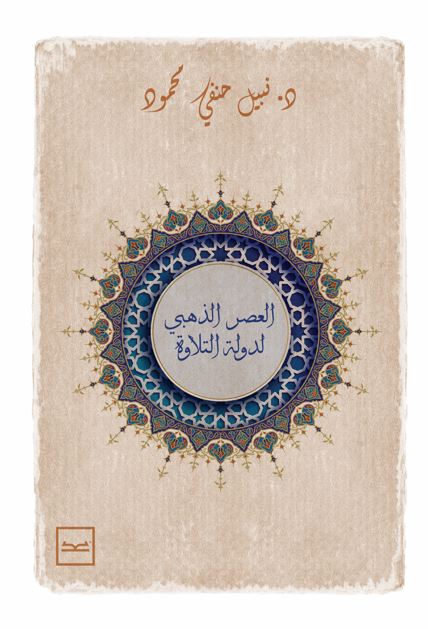 د. نبيل حنفي محمود
العصر الذهبي
لدولة التلاوة